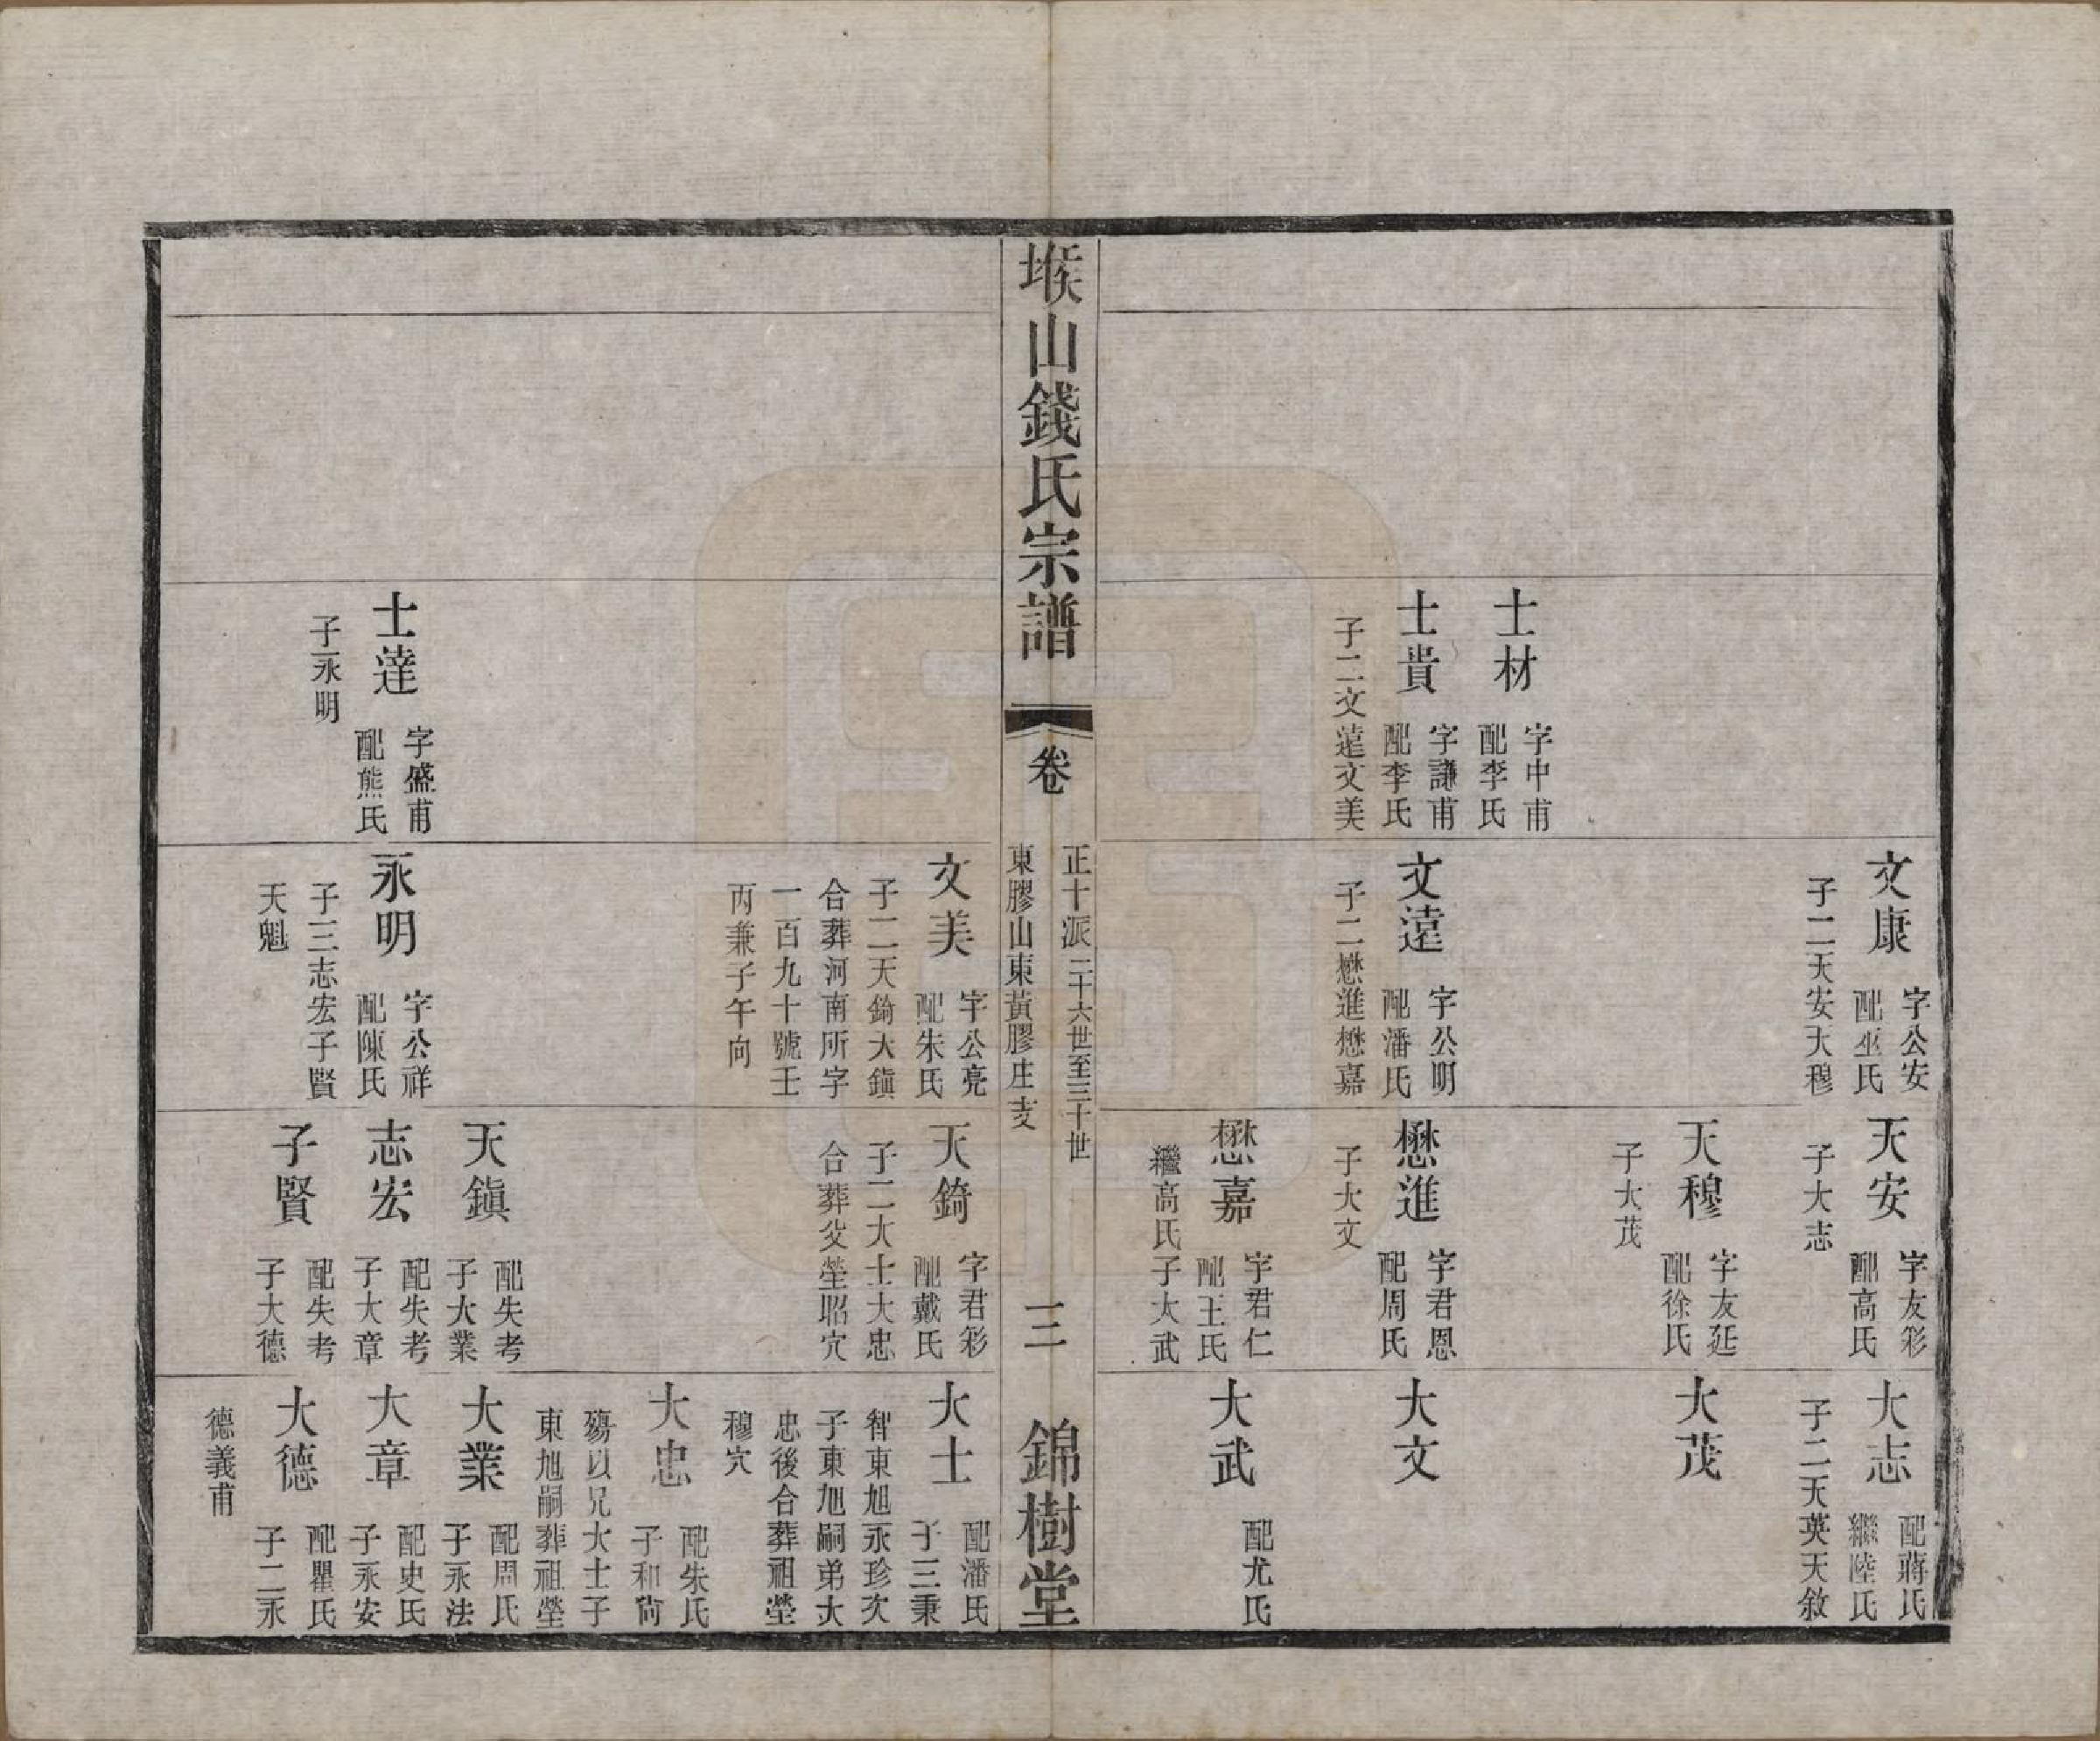 士材
字中甫
配李氏
士貴
字謙甫
配李氏
子二文遠文美
文康
字公安
配巫氏
子二天安天穆
文遠
字公明
配潘氏
子二懋進懋嘉
天安
字友彩
配高氏
子大志
天穆
字友延
配徐氏
子大茂
懋進
字君恩
配周氏
子大文
懋嘉
字君仁
配王氏
繼高氏子大武
大志
配蔣氏
繼陸氏
子二天英天敘
大茂
大文
大武
配尤氏
堠山錢氏宗譜
卷
正十派二十六世至三十世
東膠山東黃膠庄支
三
錦樹堂
士達
字盛甫
配熊氏
子永明
文美
字公亮
配朱氏
子二天錡天鎮
合葬河南所字
一百九十號壬
丙兼子午向
永明
字公祥
配陳氏
子三志宏子賢
天魁
天錡
字君彩
配戴氏
子二大士大忠
合葬父塋昭穴
天鎮
配失考
子大業
志宏
配失考
子大章
子賢
配失考
子大德
大士
配潘氏
子三秉
智東旭永珍次
子東旭嗣弟大
忠後合葬祖塋
穆穴
大忠
配朱氏
子和尙
殤以兄大士子
東旭嗣葬祖塋
大業
配周氏
子永法
大章
配史氏
子永安
大德
配瞿氏
子二永
德義甫